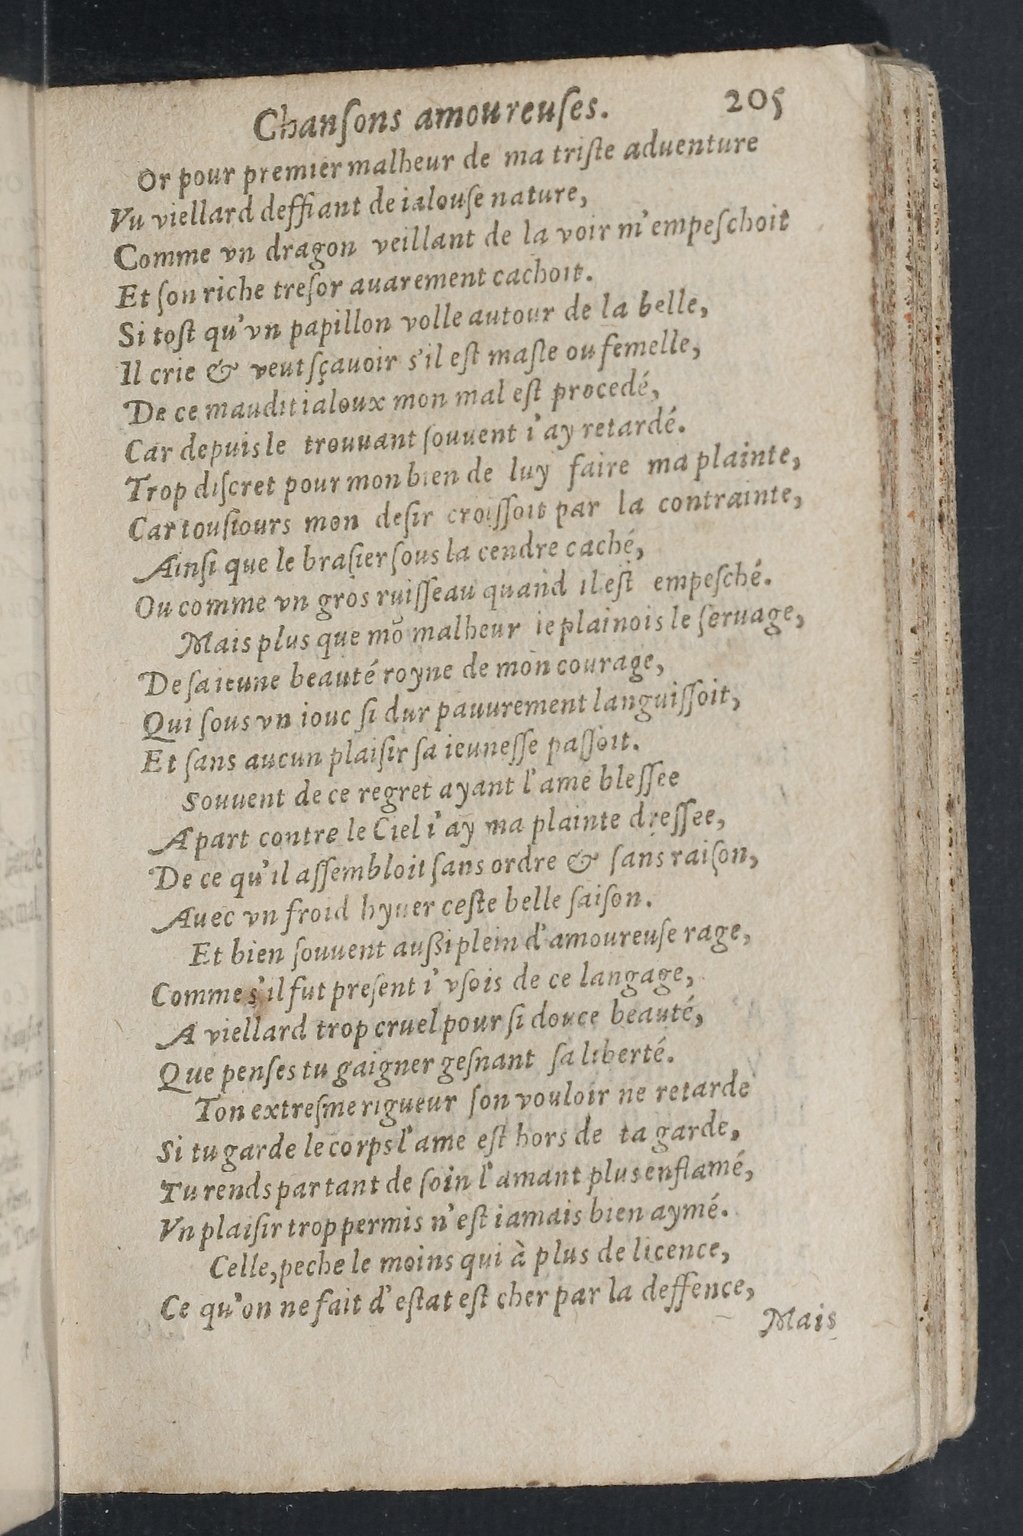 Chanſons amoureuſes. 205
Or pour premier malheur de ma triſte aduenture
Vu viellard deffiant de ialouſe nature,
Comme vn dragon veillant de la voir m'empeſchoit
Et ſon riche treſor auarement cachoit.
Si toſt qu'vn papillon volle autour de la belle,
Il crie & veut ſçauoir s'il eſt maſle ou femelle,
De ce maudit ialoux mon mal eſt procedé,
Car depuis le trouuant ſouuent i'ay retardé.
Trop diſcret pour mon bien de luy faire ma plainte,
Car touſiours mon deſir croiſſoit par la contrainte,
Ainſi que le braſier ſous la cendre caché,
Ou comme vn gros ruiſſeau quand il eſt empeſché.
Mais plus que mõ malheur ie plainois le ſeruage,
De ſa ieune beauté royne de mon courage,
Qui ſous vn iouc ſi dur pauurement languiſſoit,
Et ſans aucun plaiſir ſa ieuneſſe paſſoit.
Souuent de ce regret ayant l'ame bleſſee
A part contre le Ciel i'ay ma plainte dreſſee,
De ce qu'il aſſembloit ſans ordre & ſans raiſon,
Auec vn froid hyuer ceſte belle ſaiſon.
Et bien ſouuent außi plein d'amoureuſe rage,
Comme s'il fut preſent i'vſois de ce langage,
A viellard trop cruel pour ſi douce beauté,
Que penſes tu gaigner geſnant ſa liberté.
Ton extreſme rigueur ſon vouloir ne retarde
Si tu garde le corps l'ame eſt hors de ta garde,
Tu rends par tant de ſoin l'amant plus enflamé,
Vn plaiſir trop permis n'eſt iamais bien aymé.
Celle, peche le moins qui à plus de licence,
Ce qu'on ne fait d'eſtat eſt cher par la deffence,
Mais